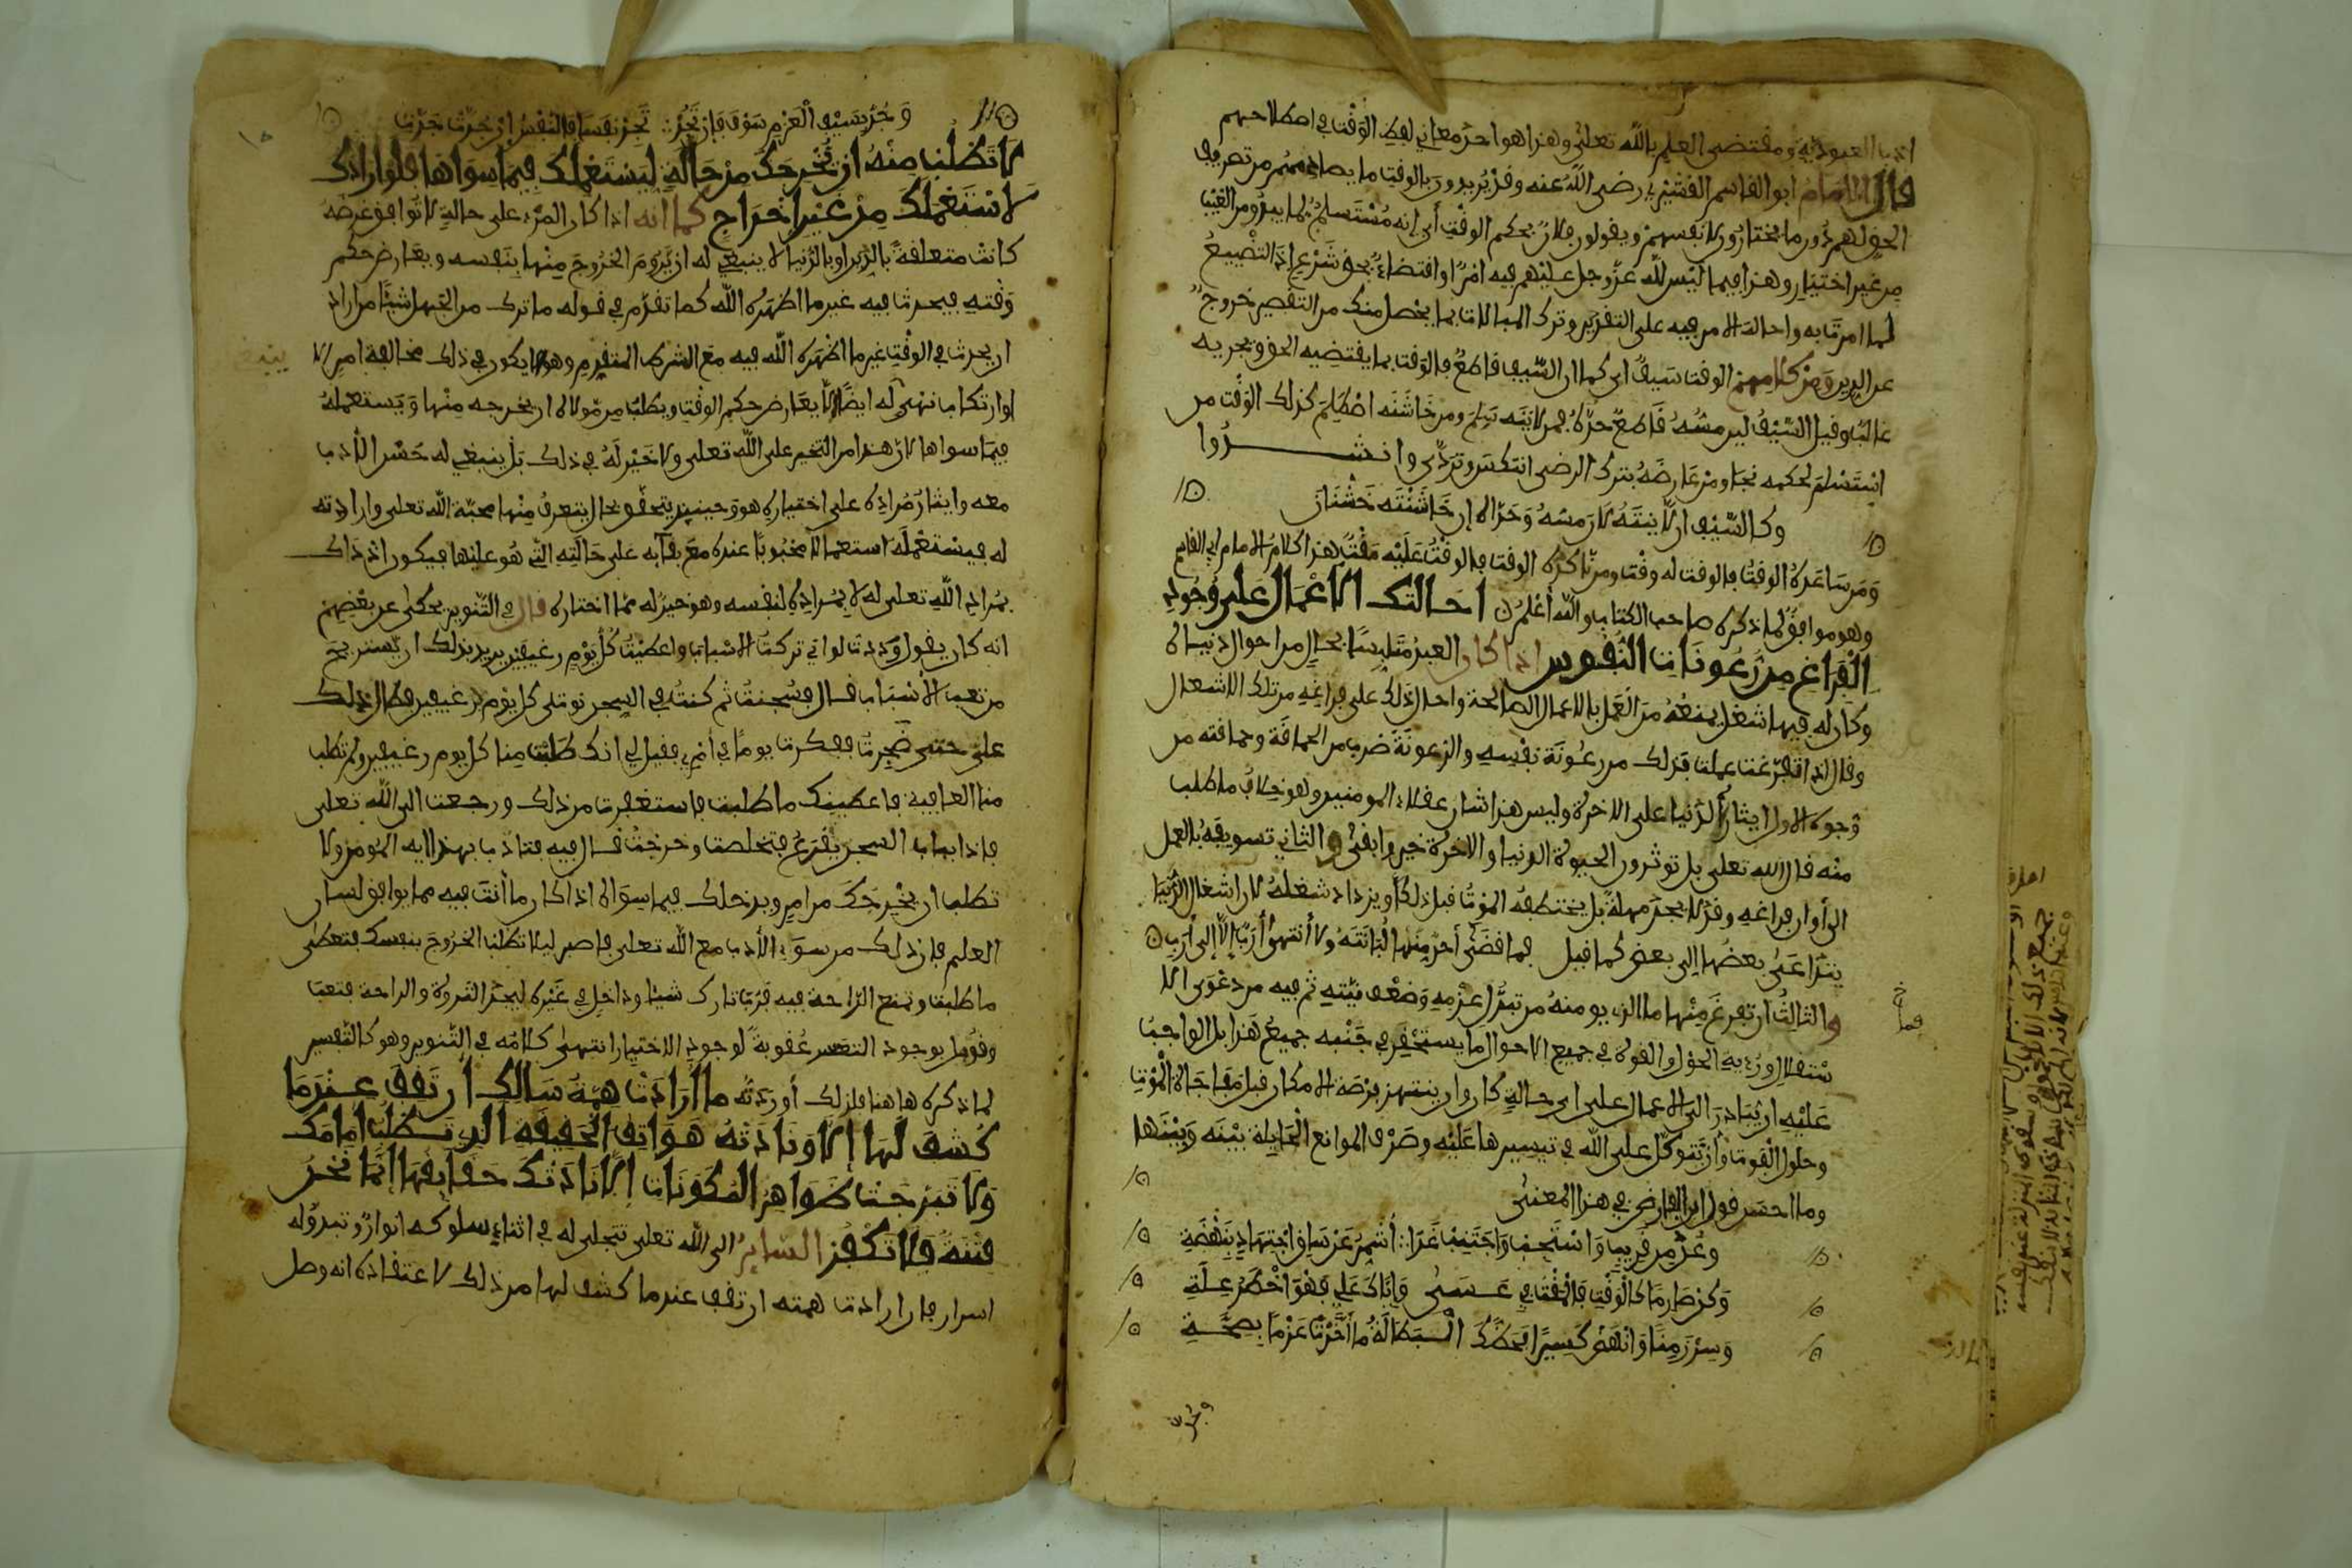 ادب العبودية ومقتضى العلم بالله تعلى وهذا هو احد معاني لفظ الوقت في اصطلاحهم
قال الامام ابو القاسم القشيري رضى الله عنه وقد يريدون بالوقت ما يصادفهم من تصريف
الحق لهم دون ما يختارون لانفسهم ويقولون فلان بحكم الوقت أي انه مُسْتَسلم لما يبدو من الغيب
من غير اختيار وهذا فيما ليس لله عز وجل عليهم فيه امرٌ او اقتضاءٌ بحق شرع اذ التضييع
لما امرت به واحالة الامر فيه على التقدير وترك المبالات بما يحصل منك من التقصير خروج
عن الدين ومن كلامهم الوقت سيف اي كما ان السيف قاطع فالوقت بما يقتضيه الحق ويجريه
غالب وقيل السيف لين مسه قاطع حده فمن لاينه سلم ومن خاشنه اصطلم كذلك الوقت من
استسلم لحكمه نجا ومن عارضه بترك الرضى انتكس وتردى وانشدوا
وكالسيف ان لاينته لان مسه وحداه ان خاشنته خشنان
ومن ساعده الوقت فالوقت له وقت ومن ناكره الوقت فالوقت عليه مقت هذا كلام الامام ابي القاسم
وهو موافق لما ذكره صاحب الكتاب والله أعلم احالتك الاعمال على وجود
الفراغ من رعونات النفوس اذا كان العبد متلبسا بحال من احوال دنياه
وكان له فيها شغل يمنعه من العمل بالاعمال الصالحة واحال ذلك على فراغه من تلك الاشغال
وقال اذا تفرغت عملت فذلك من رعونة نفسه والرعونة ضرب من الحماقة وحماقته من
وجوه الاول ايثار الدنيا على الاخرة وليس هذا شان عقلاء المومنين وهو خلاف ما طلب
منه قال الله تعلى بل توثرون الحيوة الدنيا والاخرة خير وابقى والثاني تسويفه بالعمل
الى أوان فراغه وقد لا يجد مهلة بل يختطفه الموت قبل ذلك أو يزداد شغله لان اشغال الدنيا
يتداعى بعضها الى بعض كما قيل فما قضى أحد منها لبانته ولا أنتهى أرب إلا إلى أرب
والثالث ان تفرغ منها ما الذي يومنه من تبدل عزمه وضعف نيته ثم فيه من دعوى الا
ستقلال ورؤية الحول والقوة في جميع الاحوال ما يستحقر في جنبه جميع هذا بل الواجب
عليه ان يبادر الى الاعمال على اى حالة كان وان ينتهز فرصة الامكان قبل مفاجاة الموت
وحلول الفوت وأن يتوكل على الله في تيسيرها عليه وصرف الموانع الحايلة بينه وبينها
وما احسن قول ابن الفارض في هذا المعنى
وعد من قريب واستجب واجتنب غدا أشمر عن ساق اجتهاد بنهضة
وكن صارما كالوقت فالمقت في عسى وإياك علي فهو اخطر علة
وسر زمنا وانهض كسيرا فحظك البطالة ما أخرت عزما بصحة
وجذ
وجُذ بسيف العزم سوف فإن تجد تجد نفسا فالنفس إن جدت جدت
لا تطلب منه ان يخرجك من حالة ليستعملك فيما سواها فلو ارادك
لاستعملك من غير اخراج كما انه اذا كان المرء على حالة لا توافق غرضه
كانت متعلقة بالدين او بالدنيا لا ينبغي له ان يروم الخروج منها بنفسه ويعارض حكم
وقته فيحدث فيه غير ما اظهره الله كما تقدم في قوله ما ترك من الجهل شيئا من اراد
ان يحدث في الوقت غير ما اظهره الله فيه مع الشرط المتقدم وهو الا يكون في ذلك مخالفة امر الا
او ارتكاب نهي له ايضا الا يعارض حكم الوقت ويطلب من مولاه ان يخرجه منها ويستعمله
فيما سواها لان هذا من التخير على الله تعلى ولا خير له في ذلك بل ينبغي له حسن الأدب
معه وايثار مراده على اختياره هو وحينيذ يتحقق بحال يتعرف منها محبة الله تعلى وارادته
له فيستعمله استعمالا محبوبا عنده مع بقايه على حالته التي هو عليها فيكون اذ ذاك
بمراد الله تعلى له لا بمراده لنفسه وهو خير له مما اختاره قال في التنوير يحكى عن بعضهم
انه كان يقول وددت لو اني تركت الاسباب واعطيت كل يوم رغيفين يريد بذلك ان يستريح
من تعب الأسباب قال فسجنت ثم كنت في السجن نوتى كل يوم برغيفين فطال ذلك
علي حتى ضجرت ففكرت يوما في أمري فقيل لي انك طلبت منا كل يوم رغيفين ولم تطلب
منا العافية فاعطيناك ما طلبت فاستغفرت من ذلك ورجعت الى الله تعلى
فاذا بباب السجن يقرع فتخلصت وخرجت قال فيه فتادب بهذا ايه المومن ولا
تطلب ان يخرجك من امر ويدخلك فيما سواه اذا كان ما أنت فيه مما يوافق لسان
العلم فان ذلك من سوء الأدب مع الله تعلى فاصبر ليلا تطلب الخروج بنفسك فتعطى
ما طلبت وتمنع الراحة فيه فرب تارك شيئا وداخل في غيره ليجد الثروة والراحة فتعب
وقوبل بوجود التعسر عقوبة لوجود الاختيار انتهى كلامه في التنوير وهو كالتفسير
لما ذكره هاهنا فلذلك أوردته ما أرادت همة سالك أن تقف عندما
كشف لها إلا ونادته هواتف الحقيقة الذي تطلب امامك
ولا تبرجت ظواهر المكونات إلا نادتك حقايقها إنما نحن
فتنة فلا تكفر الساير الى الله تعلى تتجلى له في اثناء سلوكه انوار وتبدو له
اسرار فان ارادت همته ان تقف عندما كشف لها من ذلك لاعتقاده انه وصل